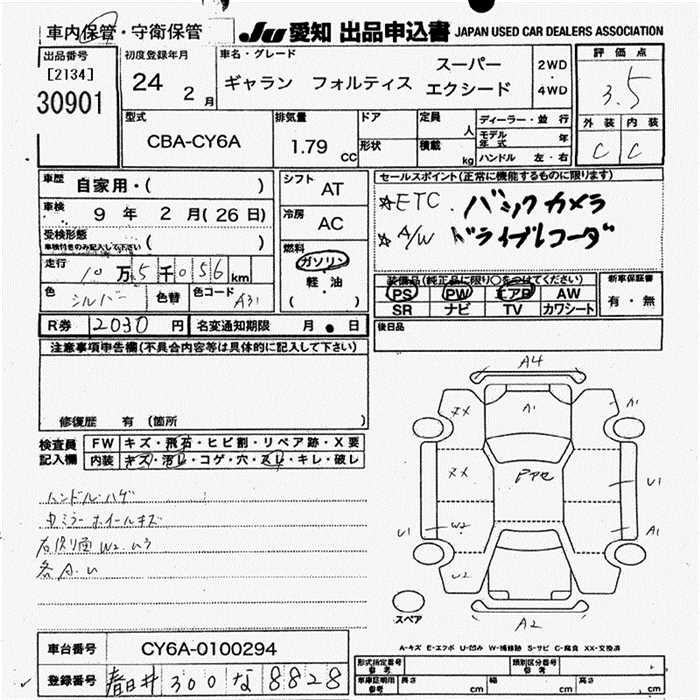 車内保管・守衛保管
JU 愛知 出品申込書 JAPAN USED CAR DEALERS ASSOCIATION
出品番号
[2134]
30901
初度登録年月
24 2 月
車名・グレード
スーパー
ギャラン フォルティス エクシード
2WD
・
4WD
評価点
3.5
外装 内装
C C
型式
CBA-CY6A
排気量
1.79 cc
ドア
形状
定員 人
積載 kg
ディーラー・並行
モデル年式 年
ハンドル 左・右
車歴
自家用・( )
車検
9 年 2 月(26 日)
受検形態
車検付きのみ記入して下さい ( )
走行
10 万 5 千 056 km
色
シルバー
色替
色コード A31
シフト
AT
冷房
AC
燃料
ガソリン
軽・油
( )
セールスポイント(正常に機能するものに限ります)
☆ETC . バックカメラ
☆A/W ドライブレコーダ
装備品(純正品に限り○をつけてください)
PS PW エアB AW
SR ナビ TV カワシート
新車保証書
有・無
R券 2030 円 名変通知期限 月 日
後日品
注意事項申告欄(不具合内容等は具体的に記入して下さい)
修復歴 有 (箇所 )
検査員
記入欄
FW キズ・飛石・ヒビ割・リペア跡・X要
内装 キズ・汚レ・コゲ・穴・スレ・キレ・破レ
ハンドルハゲ
内ミラーホイールキズ
各A.U
A4
XX
A1
A1
XX
U1
U1
W2
A1
U2
A2
スペア
A-キズ E-エクボ U-凹み W-補修跡 S-サビ C-腐食 XX-交換済
車台番号 CY6A-0100294
登録番号 春日井 300 な 8828
形式指定番号 参考
類別区分番号 参考
車庫証明用 参考
長さ cm 幅 cm 高さ cm